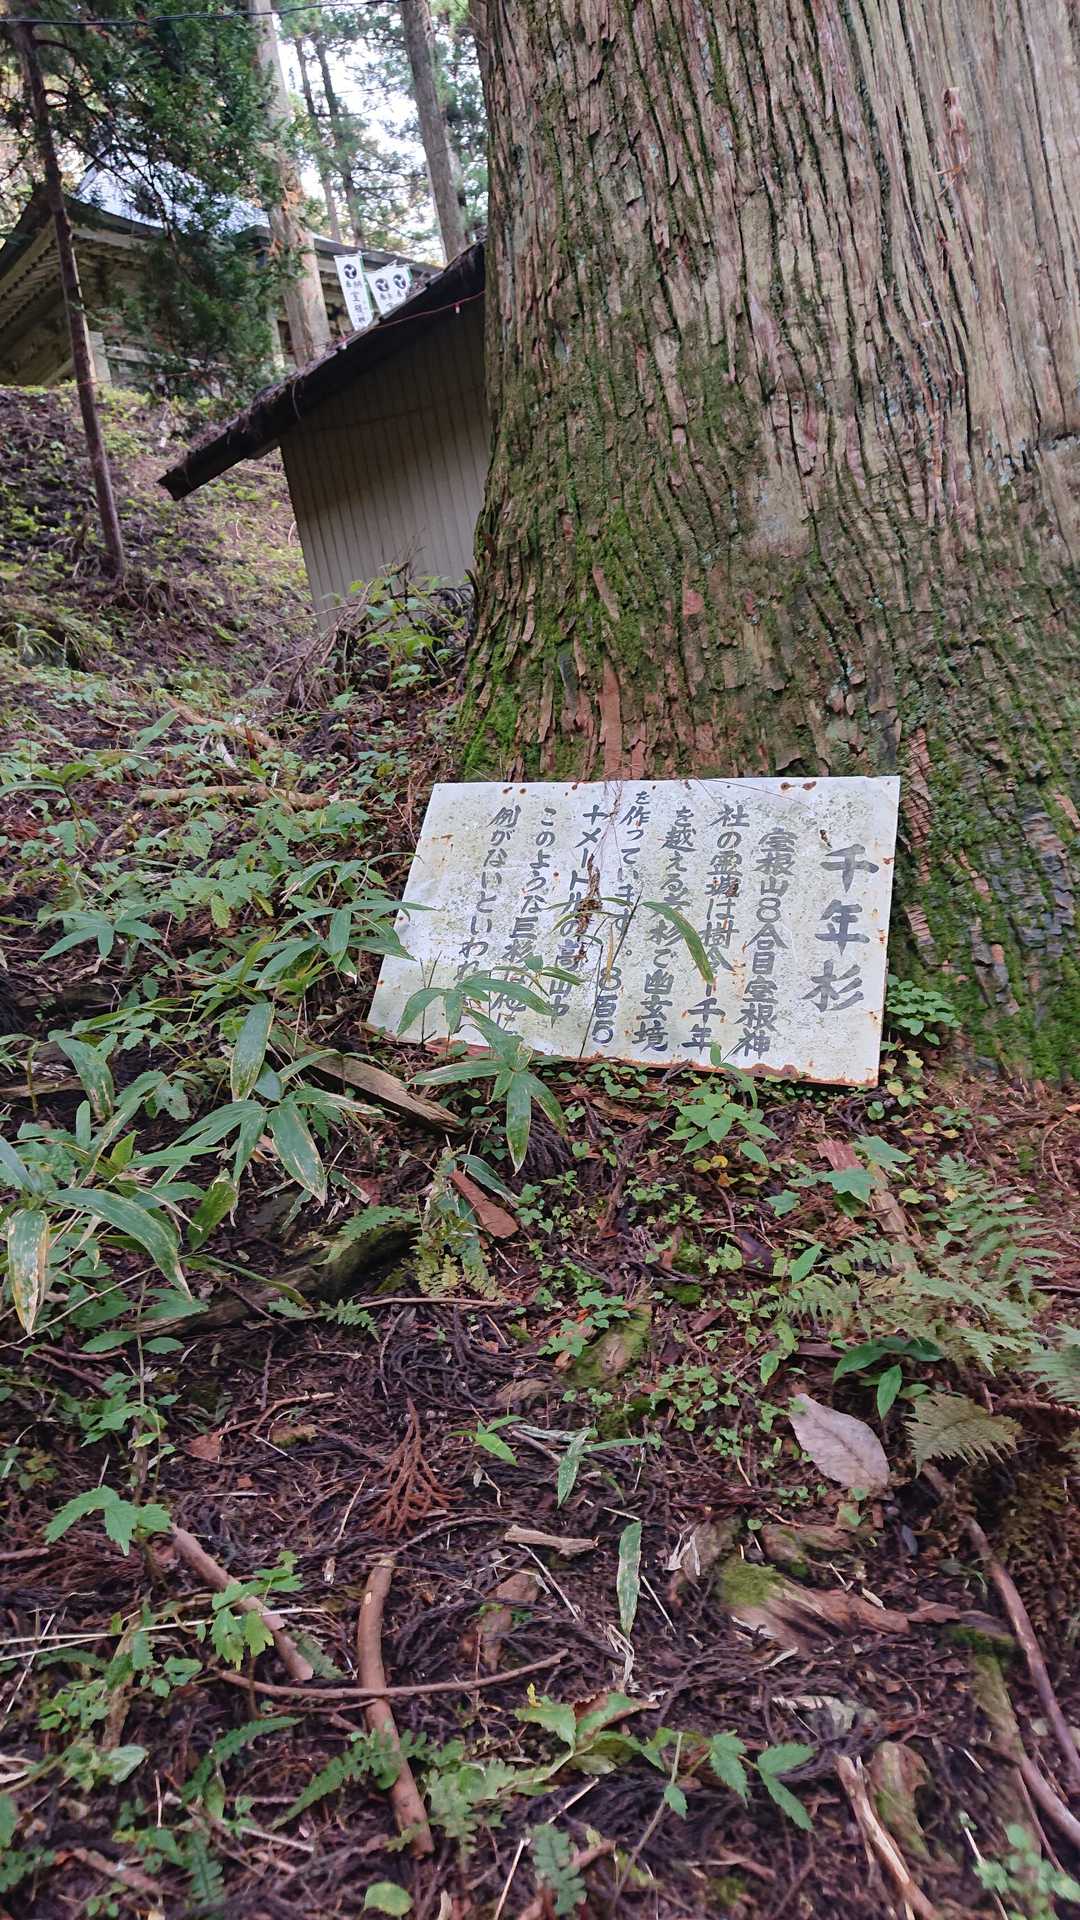 千年杉
室根山8合目室根神
社の霊域は樹令千年
を越える杉で幽玄境
を作っています。8百5
十メートルの高山で
このような巨杉は他に
例がないといわれ
奉納 室根
奉